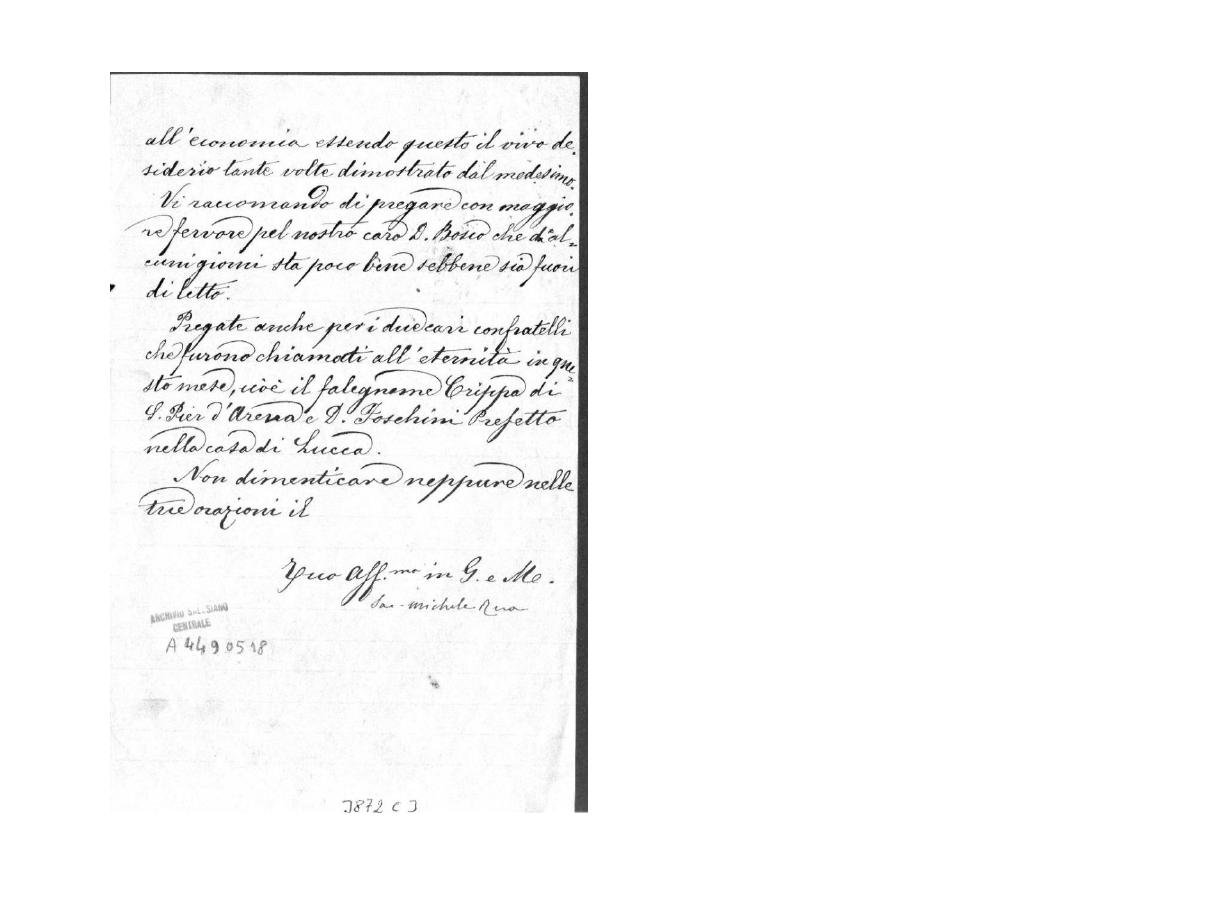 all'economia essendo questo il vivo de-
siderio tante volte dimostrato dal medesimo.
Vi raccomando di pregare con maggio-
re fervore pel nostro caro D. Bosco che da al-
cuni giorni sta poco bene sebbene sia fuori
di letto.
Pregate anche per i due cari confratelli
che furono chiamati all'eternità in que-
sto mese, cioè il falegname Crippa di
S. Pier d'Arena e D. Foschini Prefetto
nella casa di Lucca.
Non dimenticare neppure nelle
tue orazioni il
Tuo Aff.mo in G. e M.
Sac. Michele Rua
ARCHIVIO SALESIANO
CENTRALE
A 4490518
3872 C 3